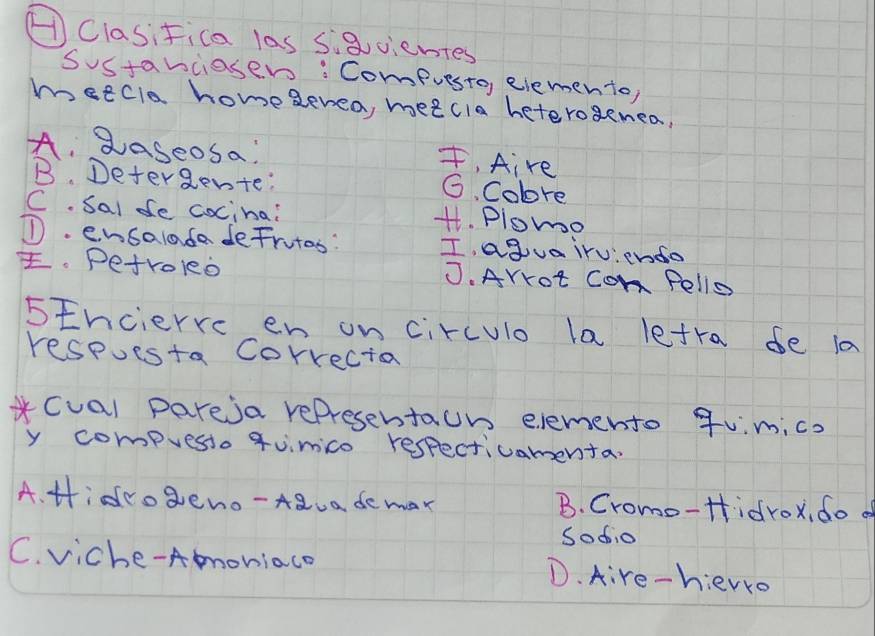 ④ Clasifica las siguientes
sustanciasen : Compuesto, elemento,
mezcla homogenea, mezcla heterogenea.
A. gaseosa:
B. Detergente:
C. sal de cocina:
D. ensalada de Frutas:
E. Petroleo
F. Aire
G. Cobre
H. Plomo
I. agua irviendo
J. Arroz con Pello
5 Encierre en un circulo la letra de la
respuesta Correcta
* Cual Pareja representaun elemento quimico
y compuesto quimico respectivamenta.
A. Hidrogeno - Agua de mar
B. Cromo - Hidroxido d
Sodio
C. viche - Amoniaco
D. Aire - hierro